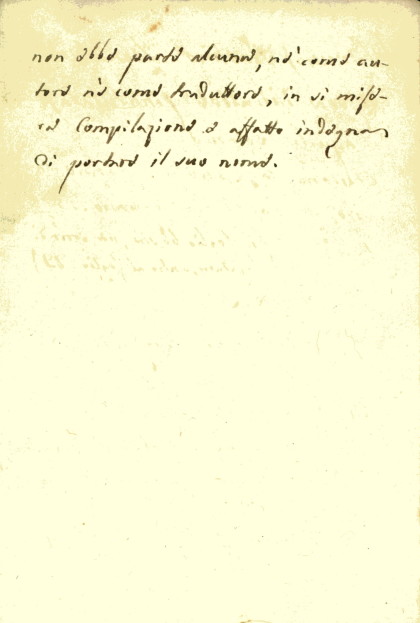 non ebbe parte alcuna, nè come au-
tore nè come traduttore, in sì mise-
ra Compilazione e affatto indegna
di portare il suo nome.